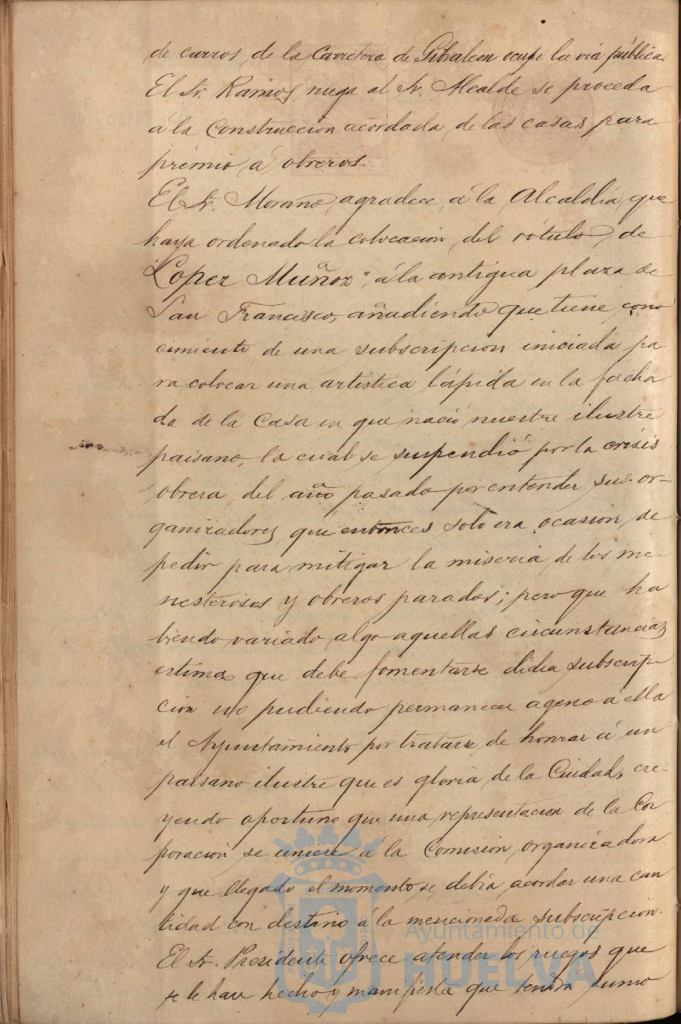 de carros, de la Carretera de Gibraleon ocupe la via pública.
El Sr. Ramos, ruega al Sr. Alcalde se proceda
á la Construccion acordada, de las casas para
premio, á obreros.
El Sr. Moraño, agradece, á la Alcaldia, que
haya ordenado la colocacion, del rótulo, de
"Lopez Muñoz", á la antigua plaza de
San Francisco, añadiendo que tiene cono
cimiento de una subscripcion iniciada pa
ra colocar una artistica lápida en la facha
da de la Casa en que nació nuestre ilustre
paisano, la cual se suspendió por la crisis
obrera, del año pasado por entender sus or-
ganizadores, que entonces solo era ocasion, de
pedir para mitigar la miseria, de los me-
nesterosos y obreros parados; pero que ha
biendo variado algo aquellas circunstancias
estima, que debe fomentarse dicha subscrip
cion no pudiendo permanecer ageno á ella
el Ayuntamiento por tratarse de honrar á un
paisano ilustre que es gloria, de la Ciudad, cre-
yendo oportuno que una representacion de la Cor
poracion se uniese á la Comision, organizadora
y que llegado el momento se debia acordar una can
tidad con destino á la mencionada subscripcion.
El Sr. Presidente ofrece atender los ruegos que
se le han hecho y manifiesta que tendra sumo
Ayuntamiento de
HUELVA